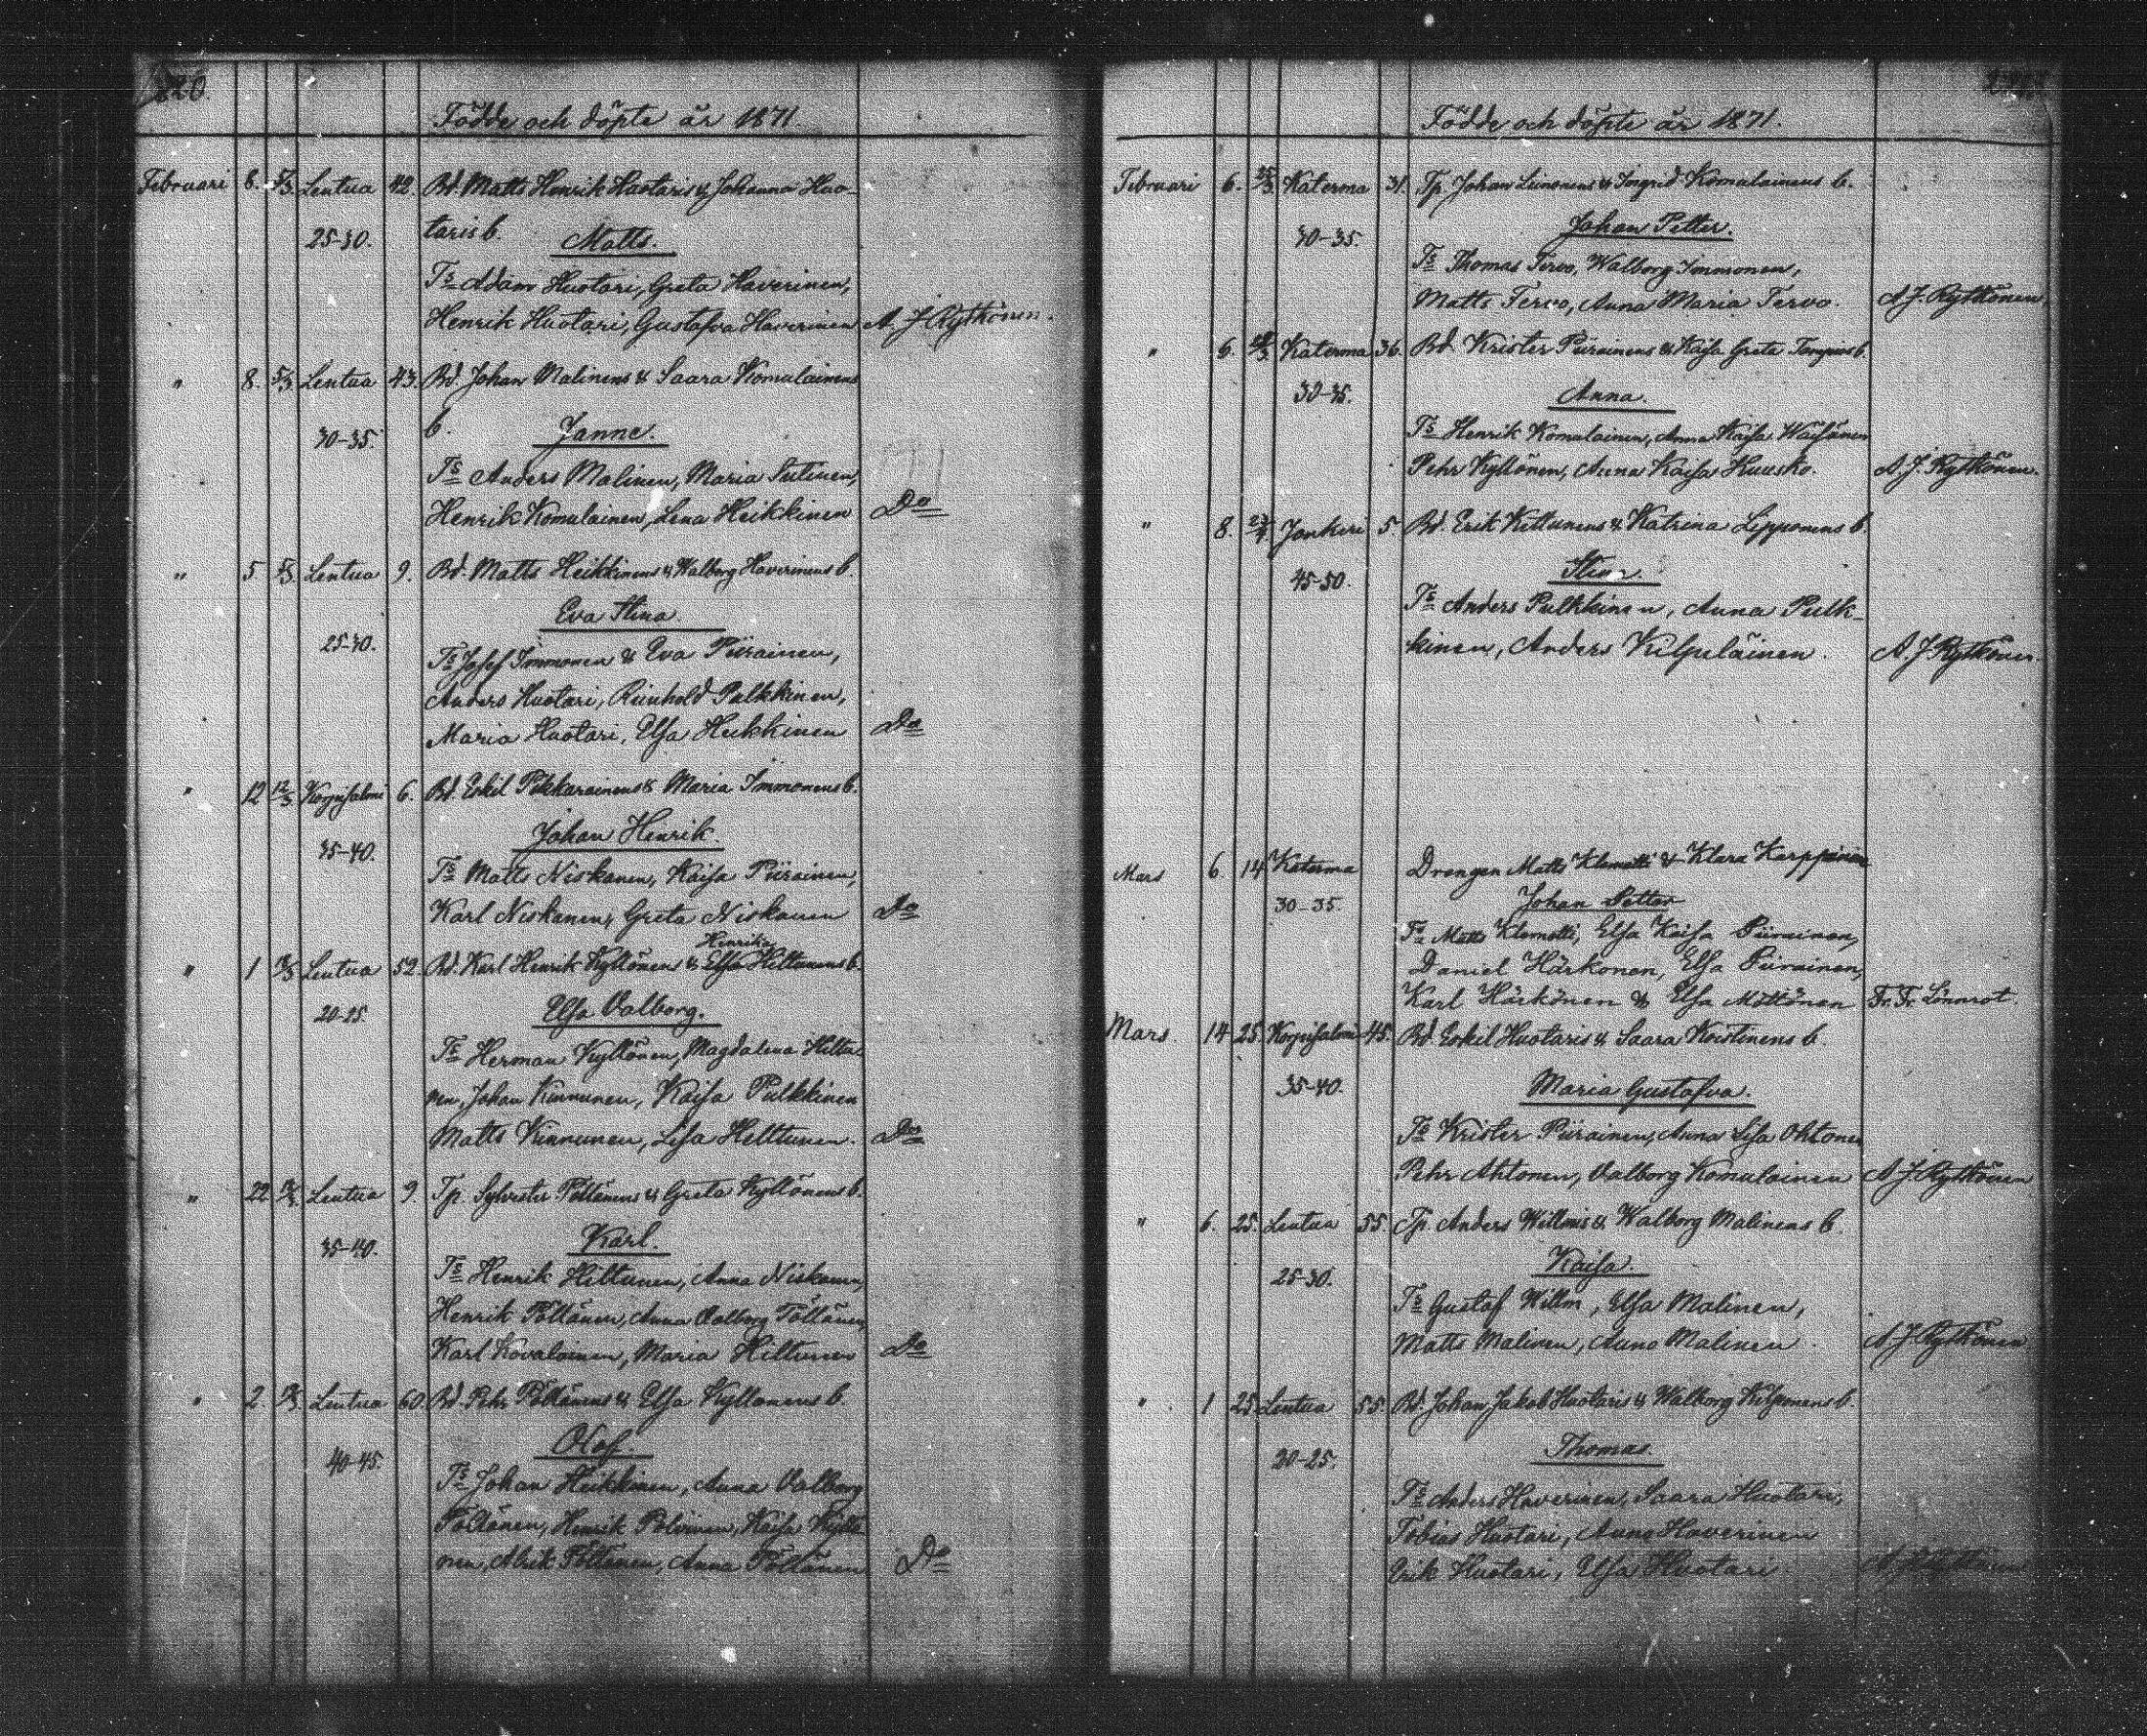 220.
Födde och döpte år 1871.
Februari 8. 5/3 Lentua 42. Bd. Matts Henrik Huotaris & Johanna Huo-
25-30. taris b. Matts.
Ts Adam Huotari, Greta Haverinen,
Henrik Huotari, Gustafva Haverinen A. J. Rytkönen.
" 8. 5/3 Lentua 43. Bd. Johan Malinens & Saara Komulainens
30-35. b. Janne.
Ts Anders Malinen, Maria Sutinen,
Henrik Komulainen, Lena Heikkinen Do
" 5 5/3 Lentua 9. Bd. Matts Heikkinens & Walborg Haverinens b.
Eva Stina
25-30. Ts Josef Immonen & Eva Piirainen,
Anders Huotari, Reinhold Pulkkinen,
Maria Huotari, Elsa Heikkinen Do
" 12 12/3 Korpisalmi 6. Bd. Eskil Pikkarainens & Maria Immonens b.
Johan Henrik.
35-40. Ts Matts Niskanen, Kaisa Piirainen,
Karl Niskanen, Greta Niskanen Do
Henrika
" 1 Lentua 52. Bd. Karl Henrik Kyllönens & Elsa Hiltunens b.
20-25. Elsa Valborg.
Ts Herman Kyllönen, Magdalena Hiltu-
nen, Johan Kinnunen, Kaisa Pulkkinen
Matts Kinnunen, Lisa Hiltunen. Do
" 22 Lentua 9. Tp. Sylvester Pöllänens & Greta Kyllönens b.
35-40. Karl.
Ts Henrik Hiltunen, Anna Niskanen,
Henrik Pöllänen, Anna Valborg Pöllänen,
Karl Kovalainen, Maria Hiltunen Do
" 2. Lentua 60. Bd. Pehr Pöllänens & Elsa Kyllönens b.
40-45. Olof.
Ts Johan Heikkinen, Anna Valborg
Pöllänen, Henrik Polvinen, Kaisa Kyllö-
nen, Alrik Pöllänen, Anna Pöllänen Do
Födde och döpte år 1871.
Februari 6. 25/3 Katerma 31. Tp. Johan Leinonens & Ingrid Komulainens b.
30-35. Johan Petter.
Ts Thomas Tervo, Walborg Immonen,
Matts Tervo, Anna Maria Tervo. A. J. Rytkönen.
" 6. Katerma 36. Bd. Krister Piirainens & Kaisa Greta b.
30-35. Anna.
Ts Henrik Komulainen, Anna Kaisa Waisänen
Pehr Kyllönen, Anna Kaisa Huusko. A. J. Rytkönen.
" 8. Jonkeri 5. Bd. Erik Kettunens & Katrina Lepponens b.
45-50. Stina.
Ts Anders Pulkkinen, Anna Pulk-
kinen, Anders Kilpeläinen. A. J. Rytkönen.
Mars 6 14 Katerma Drengen Matts Klemetti & Klara Karppinen
30-35. Johan Petter
Ts Matts Klemetti, Elsa Kaisa Piirainen,
Daniel Härkönen, Elsa Piirainen,
Karl Härkönen & Elsa Möttönen Fr. Fr. Lönnrot.
Mars 14 25. Korpisalmi 45. Bd. Eskil Huotaris & Saara Koistinens b.
35-40. Maria Gustafva.
Ts Krister Piirainen, Anna Lisa Ohtonen
Pehr Ahtonen, Valborg Komulainen A J. Rytkönen
" 6. 25. Lentua 55. Tp. Anders Willmis & Walborg Malinens b.
25-30. Kaisa.
Ts Gustaf Willm, Elsa Malinen,
Matts Malinen, Anna Malinen. A J. Rytkönen
" 1 25 Lentua 55. Bd. Johan Jakob Huotaris & Walborg Kilponens b.
20-25. Thomas.
Ts Anders Haverinen, Saara Huotari,
Tobias Huotari, Anna Haverinen
Erik Huotari, Elsa Huotari. A. J. Rytkönen